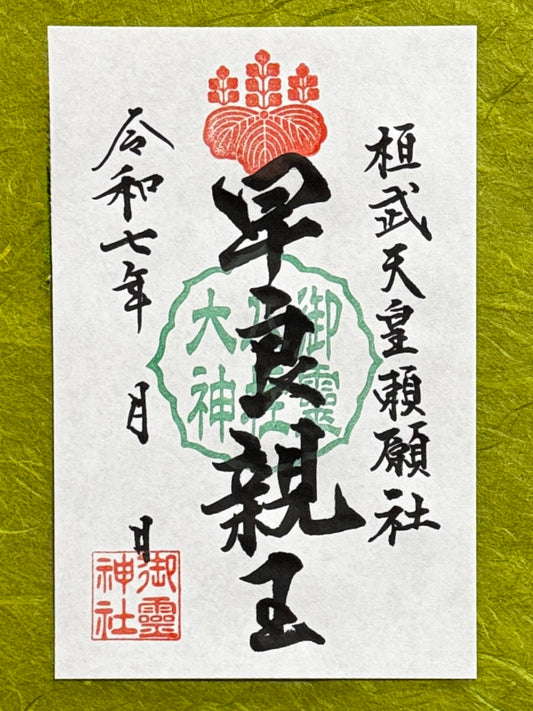 桓武天皇頼願社
早良親王
令和七年 月 日
御靈
大神
御靈
神社